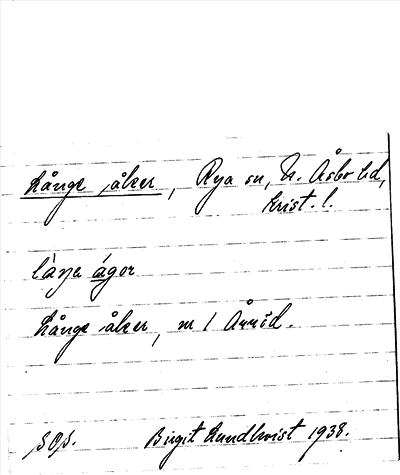 Långe åker, Rya sn, N. Åsbo hd,
Krist. l.
lång ågor
Långe åker, m / Årröd.
SOS. Birgit Lundkvist 1938.